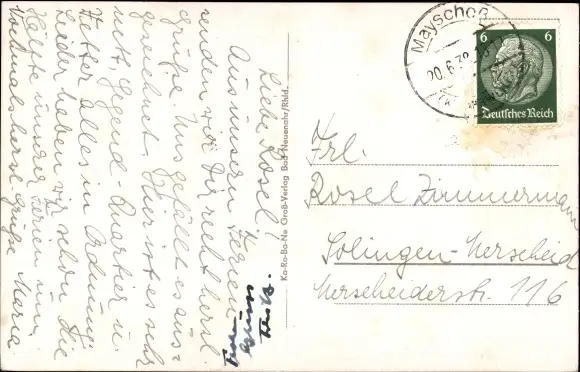 Liebe Rosel!
Aus unseren Ferien
senden wir Dir recht herzl.
Grüße. Uns gefällt es aus=
gezeichnet. Hier ist es sehr
nett. Gegend - Quartier u.
Wetter alles in Ordnung.
Leider haben wir schon die
Hälfte unserer Ferien um.
Nochmals herzl. Grüße Maria
Ka-Ro-Ba-Ne Groß-Verlag Bad Neuenahr/Rhld.
Mayschoß
20.6.38
6 6
Deutsches Reich
Frl.
Rosel Zimmermann
Solingen-Merscheid
Merscheiderstr. 116